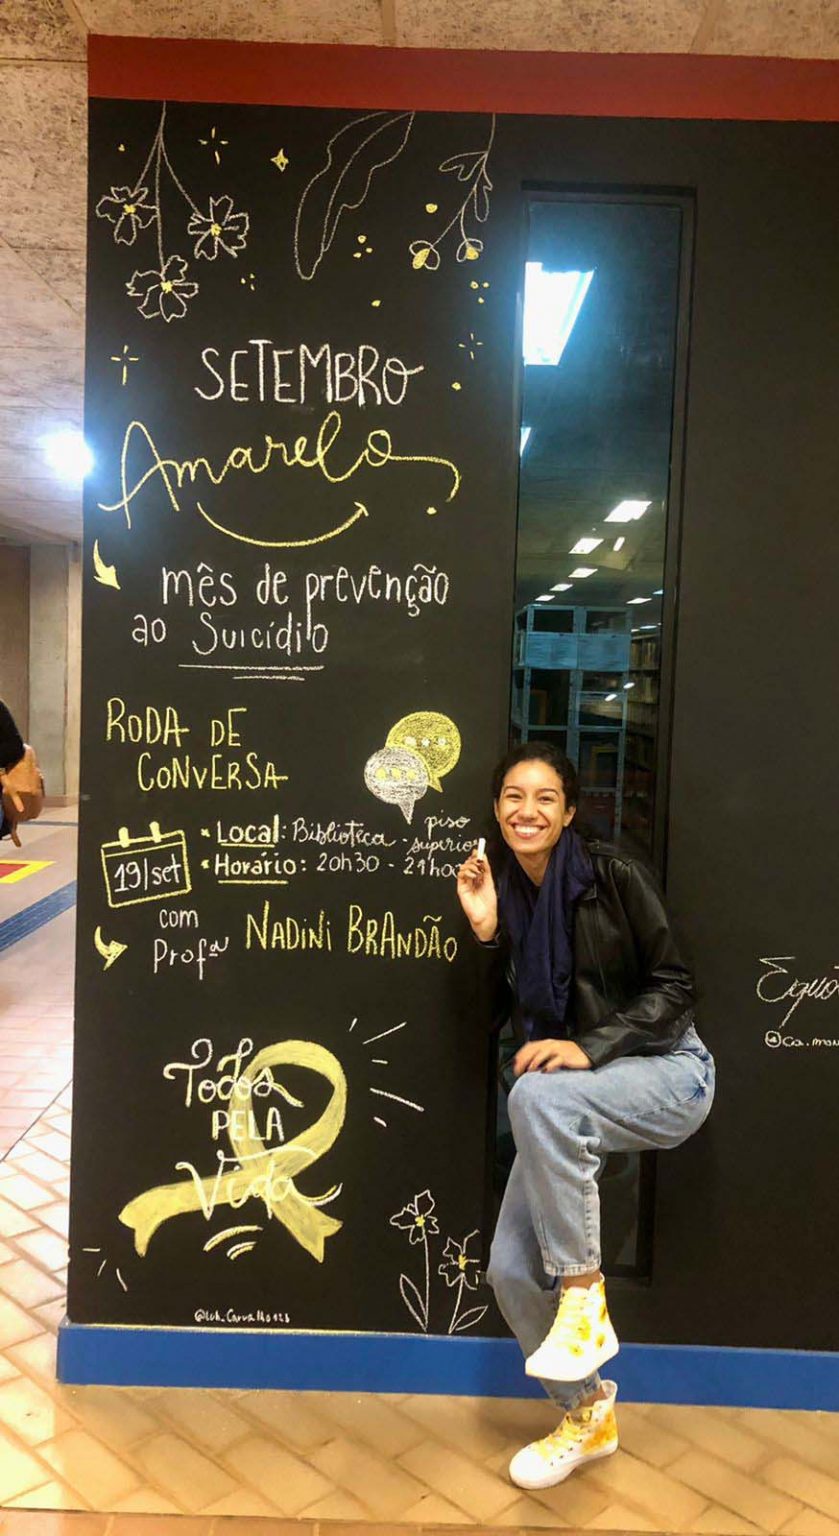 SETEMBRO
Amarelo
mês de prevenção
ao Suicídio
RODA DE
CONVERSA
19/set
• Local: Biblioteca - piso
superior
• Horário: 20h30 -
com
Profª
NADINI BRANDÃO
Todos
PELA
Vida
@luh_Carvalho128